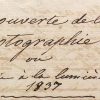 ouverte de l
otographie
ou
e à la lumiè
1837